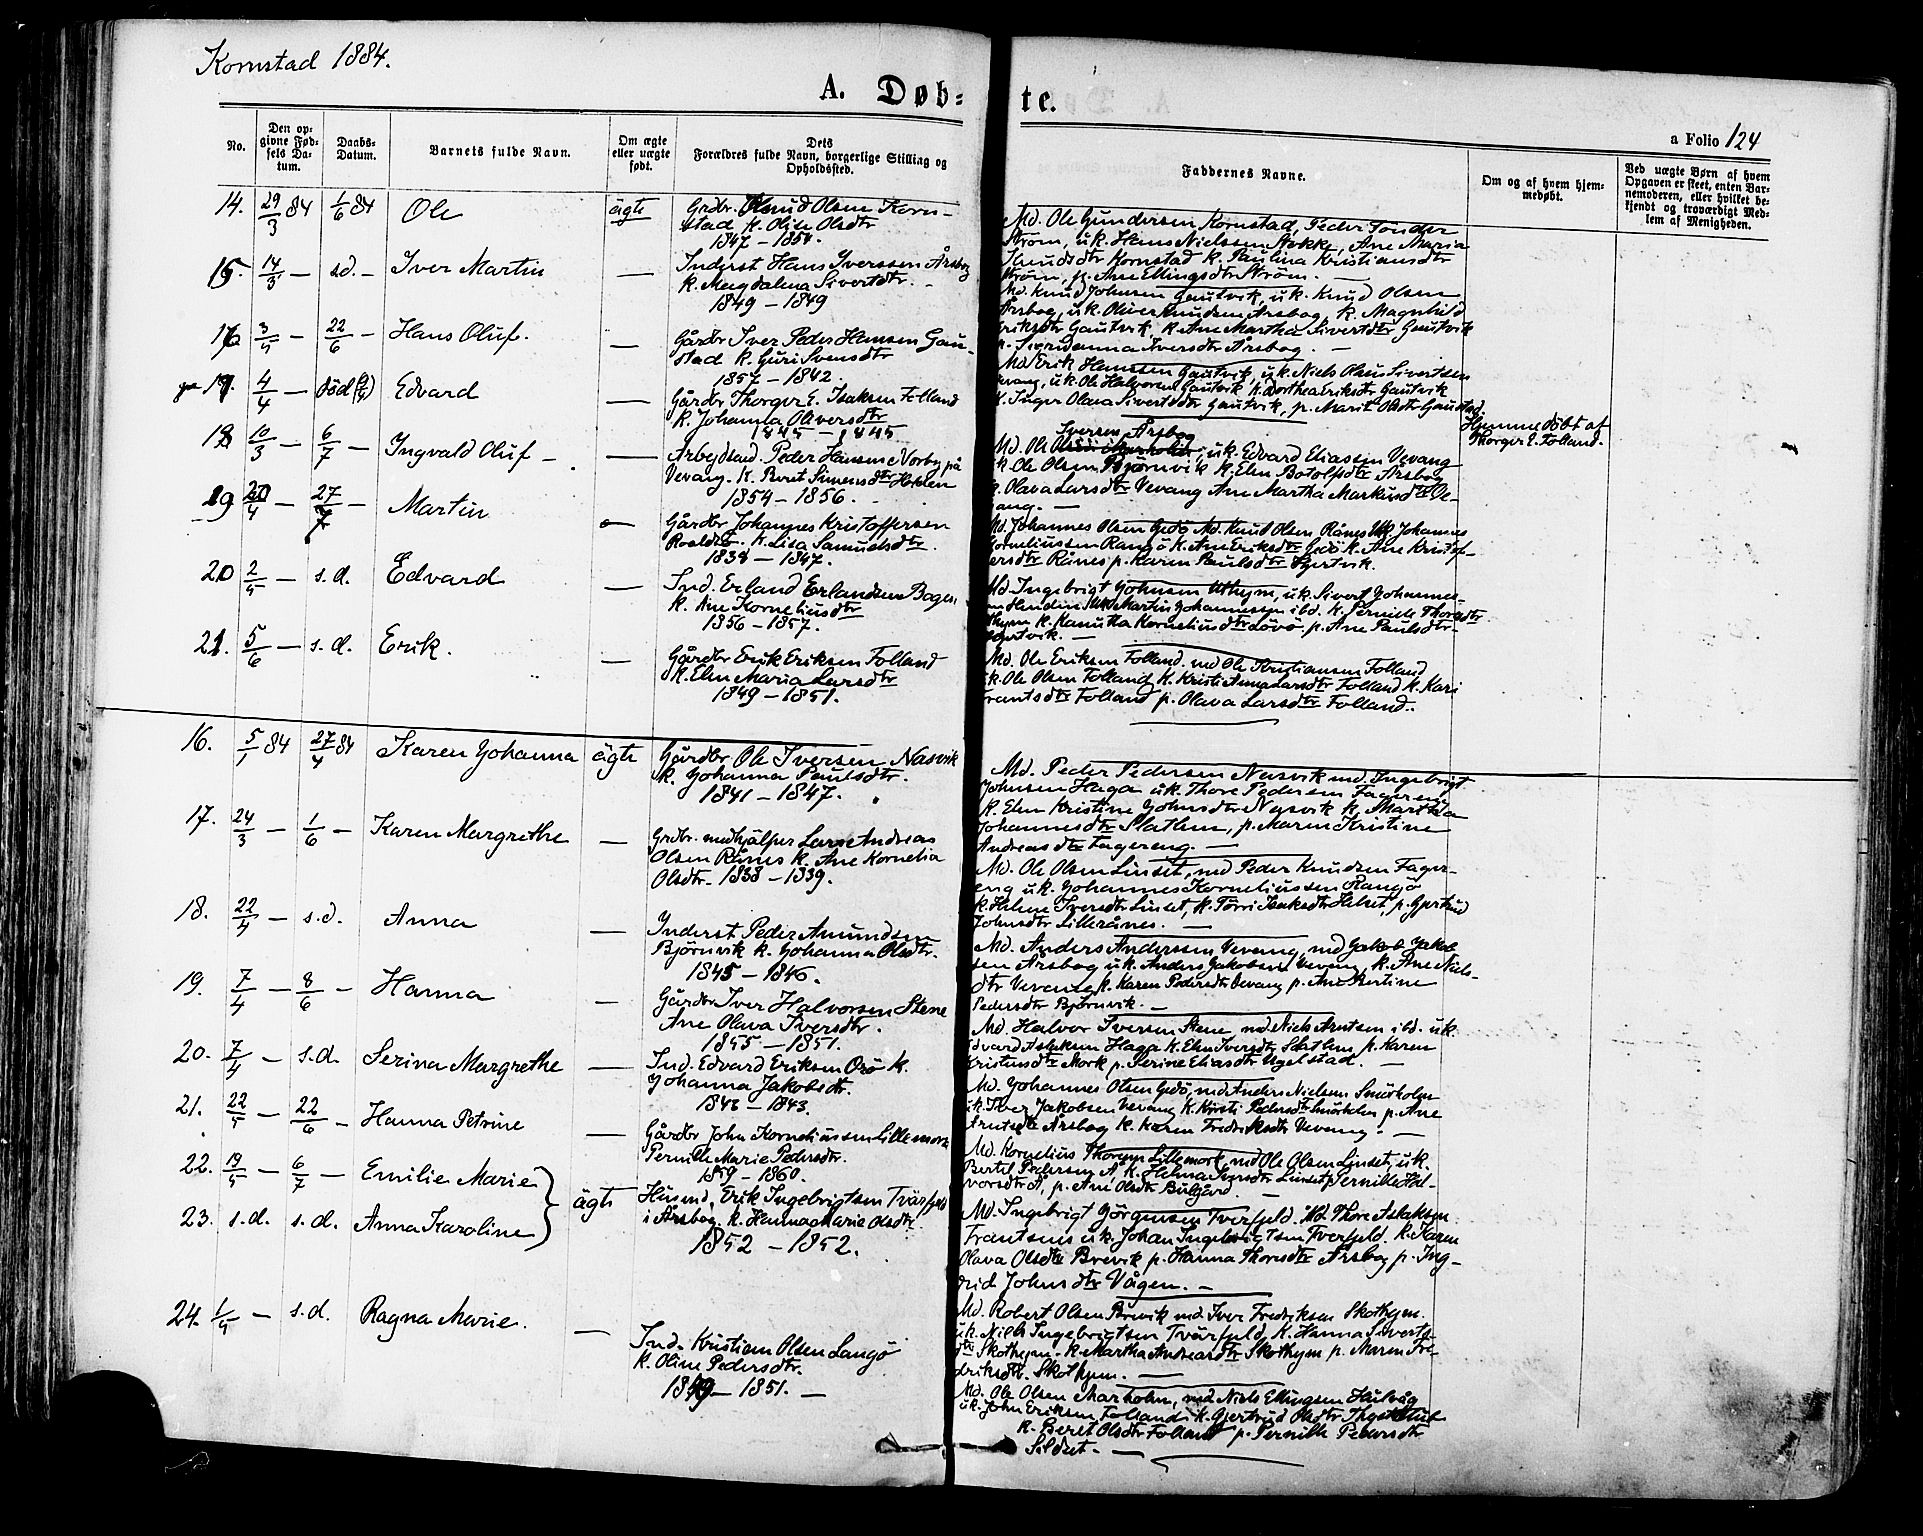 Kornstad 1884.
A. Døb= te.
a Folio 124
No.
Den op-
givne Fød-
sels Da-
tum.
Daabs-
Datum.
Barnets fulde Navn.
Om ægte
eller uægte
født.
Dets
Forældres fulde Navn, borgerlige Stilling og
Opholdssted.
Faddernes Navne.
Om og af hvem hjem-
medøbt.
Ved uægte Børn af hvem
Opgaven er skeet, enten Bar-
nemoderen, eller hvilket be-
kjendt og troværdigt Med-
lem af Menigheden.
14. 29/3 84 1/6 84 Ole ägte Grdbr. Olsen Korn-
stad k. Olsdtr
1847 – 1854.
Md. Ole Gundersen Kornstad, Peder Sönder
Ström, u.k. Hans Nielssen Stokke, Ane Maria
Kornstad k. Paulina Kristiansdtr
Ström, p. Ane Ellingsdtr Ström. –
15. 14/3 – s.d. – Iver Martin — Inderst Hans Iverssen Årsbog
k. Magdalena Sivertdtr. –
1849 – 1849
Md. Knud Johnsen Gautvik, u.k. Knud Olsen
Årsbog, u.k. Oliver Knudsen Årsbog, k. Magnhild
Eriksdtr Gautvik, k. Ane Martha Sivertdtr Gautvik
p. Iversdtr Årsbog. –
16 3/5 – 22/6 – Hans Oluf. — Gårdbr Iver Peder Hansen Gau-
stad k. Guri Svensdtr
1857 – 1842.
Md Erik Hanssen Gautvik, u.k. Niels Olaus Sivertsen
Vevang, u.k. Ole Halvorsen Gautvik k. Dorthea Eriksdtr Gautvik
k. Inger Olava Sivertsdtr Gautvik, p. Marit Olsdtr Gaustad.
17. 4/4 – död Edvard — Gårdbr Thorger E. Isaksen Folland
k. Johanna Oliversdtr
1845 – 1845
Hjemmedöbt af
Thorger E. Folland.
18 10/3 – 6/7 – Ingvald Oluf – . — Arbejdsmd. Peder Hansen Norby på
Vevang. k. Beret Simensdtr Holden
1854 – 1856.
Iversen Årsbog
Md. Ole, u.k. Edvard Eliassen Vevang
k. Ole Olsen Björnvik k. Elen Botolfsdtr Årsbog
k. Olava Larsdtr Vevang Ane Martha Markusdtr Ve-
vang. –
19 20/4 – 27/7 – Martin — Gårdbr Johannes Kristoffersen
k. Lisa Samuelsdtr.
1838 – 1847.
Md. Johannes Olsen Gedö Md. Knud Olsen Rånes u.k. Johannes
Korneliussen Rangö k. Ane Eriksdtr Gedö k. Ane Kristof-
fersdtr Rånes p. Karen Paulsdtr
20 2/5 – s.d. Edvard — Ind. Erland Erlandsen Bogen
k. Ane Korneliusdtr
1856 – 1857.
Md. Ingebrigt Johnsen Uthjem, u.k. Sivert Johannes-
sen Martin Johannessen ibd. k. Pernille Thoresdtr
k. Kanutta Korneliusdtr Lövö p. Ane Paulsdtr
21 5/6 – s.d. Erik. — Gårdbr Erik Eriksen Folland
k. Elen Maria Larsdtr
1849 – 1851.
Md. Ole Eriksen Folland. md Ole Kristiansen Folland
u.k. Ole Olsen Folland k. Kristi Anna Larsdtr Folland k. Kari
Frantsdtr Folland p. Olava Larsdtr Folland.
16. 5/1 84 27/4 84 Karen Johanna ägte Gårdbr Ole Iversen Nasvik
k. Johanna Paulsdtr.
1841 – 1847.
Md. Peder Pedersen Nasvik md. Ingebrigt
Johnsen Haga u.k. Thore Pedersen Fagereng
k. Elen Kristine Johnsdtr Nasvik k. Martha
Johannesdtr Slatlem, p. Maren Kristine
Andreasdtr Fagereng. –
17. 24/3 – 1/6 – Karen Margrethe — Grdbr. medhjälper Lars Andreas
Olsen Rånes k. Ane Kornelia
Olsdtr. 1838 – 1839.
Md. Ole Olsen Linset, md Peder Knudsen Fager-
eng u.k. Johannes Korneliussen Rangö
k. Helene Iversdtr Linset, k. Isaksdtr p. Gjertrud
Johnsdtr Lillerånes. –
18. 22/4 – s.d. Anna — Inderst Peder Amundsen
Björnvik k. Johanna Olsdtr.
1845 – 1846.
Md. Anders Anderssen Vevang, md Jakob Jakob-
sen Årsbog u.k. Anders Jakobsen Vevang, k. Ane Niels-
dtr Vevang k. Karen Pedersdtr Vevang p. Ane Bertine
Pedersdtr Björnvik. –
19. 7/4 – 8/6 – Hanna — Gårdbr Iver Halvorsen Stene
Ane Olava Iversdtr.
1855 – 1851.
Md. Halvor Iversen Stene md Niels Arntsen ibd. u.k.
Edvard Aslaksen Haga k. Elen Iversdtr Slatlem k. Karen
Kristensdtr Mork p. Serine Eliasdtr Vegelstad. –
20. 7/4 – s.d. Serina Margrethe — Ind. Edvard Eriksen Orö k.
Johanna Jakobsdtr.
1843 – 1843.
Md. Johannes Olsen Gedö, md Anders Nielssen Smörholm
u.k. Iver Jakobsen Vevang k. Kirsti Pedersdtr Smörholm p. Ane
Arntsdtr Årsbog k. Karen Fredriksdtr Vevang. –
21. 22/5 – 22/6 – Hanna Petrine — Gårdbr John Korneliussen Lillemork
Pernille Marie Pedersdtr.
1859 – 1860.
Md. Kornelius Lillemork, md Ole Olsen Linset, u.k.
Bertel Pedersen Å, k. Helena Iversdtr Linset Pernille Hal-
vorsdtr Å, p. Ane Olsdtr Bulgård. –
22. 19/5 – 6/7 – Emilie Marie
23. s.d. s.d. Anna Karoline
ägte Husmd. Erik Ingebrigtsen Tvärfjeld
i Årsbog. k. Hanna Marie Olsdtr
1852 – 1852.
Md. Ingebrigt Jörgensen Tverfjeld. Md. Thore Aslaksen
u.k. Johan Ingebrigtsen Tverfjeld. k. Karen
Olava Olsdtr Brevik p. Hanna Thoresdtr Årsbog p. Ing-
rid Johnsdtr Vågen. –
24. 1/5 – s.d. Ragna Marie. — Ind. Kristian Olsen Langö
k. Oline Pedersdtr.
1849 – 1851. –
Md. Robert Olsen Brevik md. Iver Fredriksen Skothjem.
u.k. Niels Ingebrigtsen Tvärfjeld, k. Hanna Siverts-
dtr Skothjem. k. Martha Andreasdtr Skothjem p. Maren Fre-
driksdtr. Skothjem. –
Md. Ole Olsen Marholm, md. Niels Ellingsen Hulvåg
u.k. John Eriksen Folland k. Gjertrud Olsdtr
k. Beret Olsdtr Folland p. Pernille Pedersdtr
Soldset. –